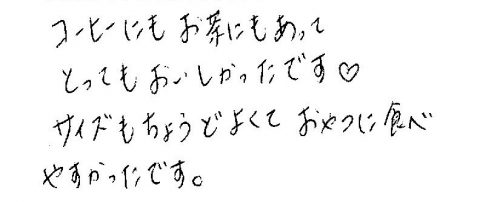 コーヒーにもお茶にもあって
とってもおいしかったです♡
サイズもちょうどよくて おやつに食べ
やすかったです。